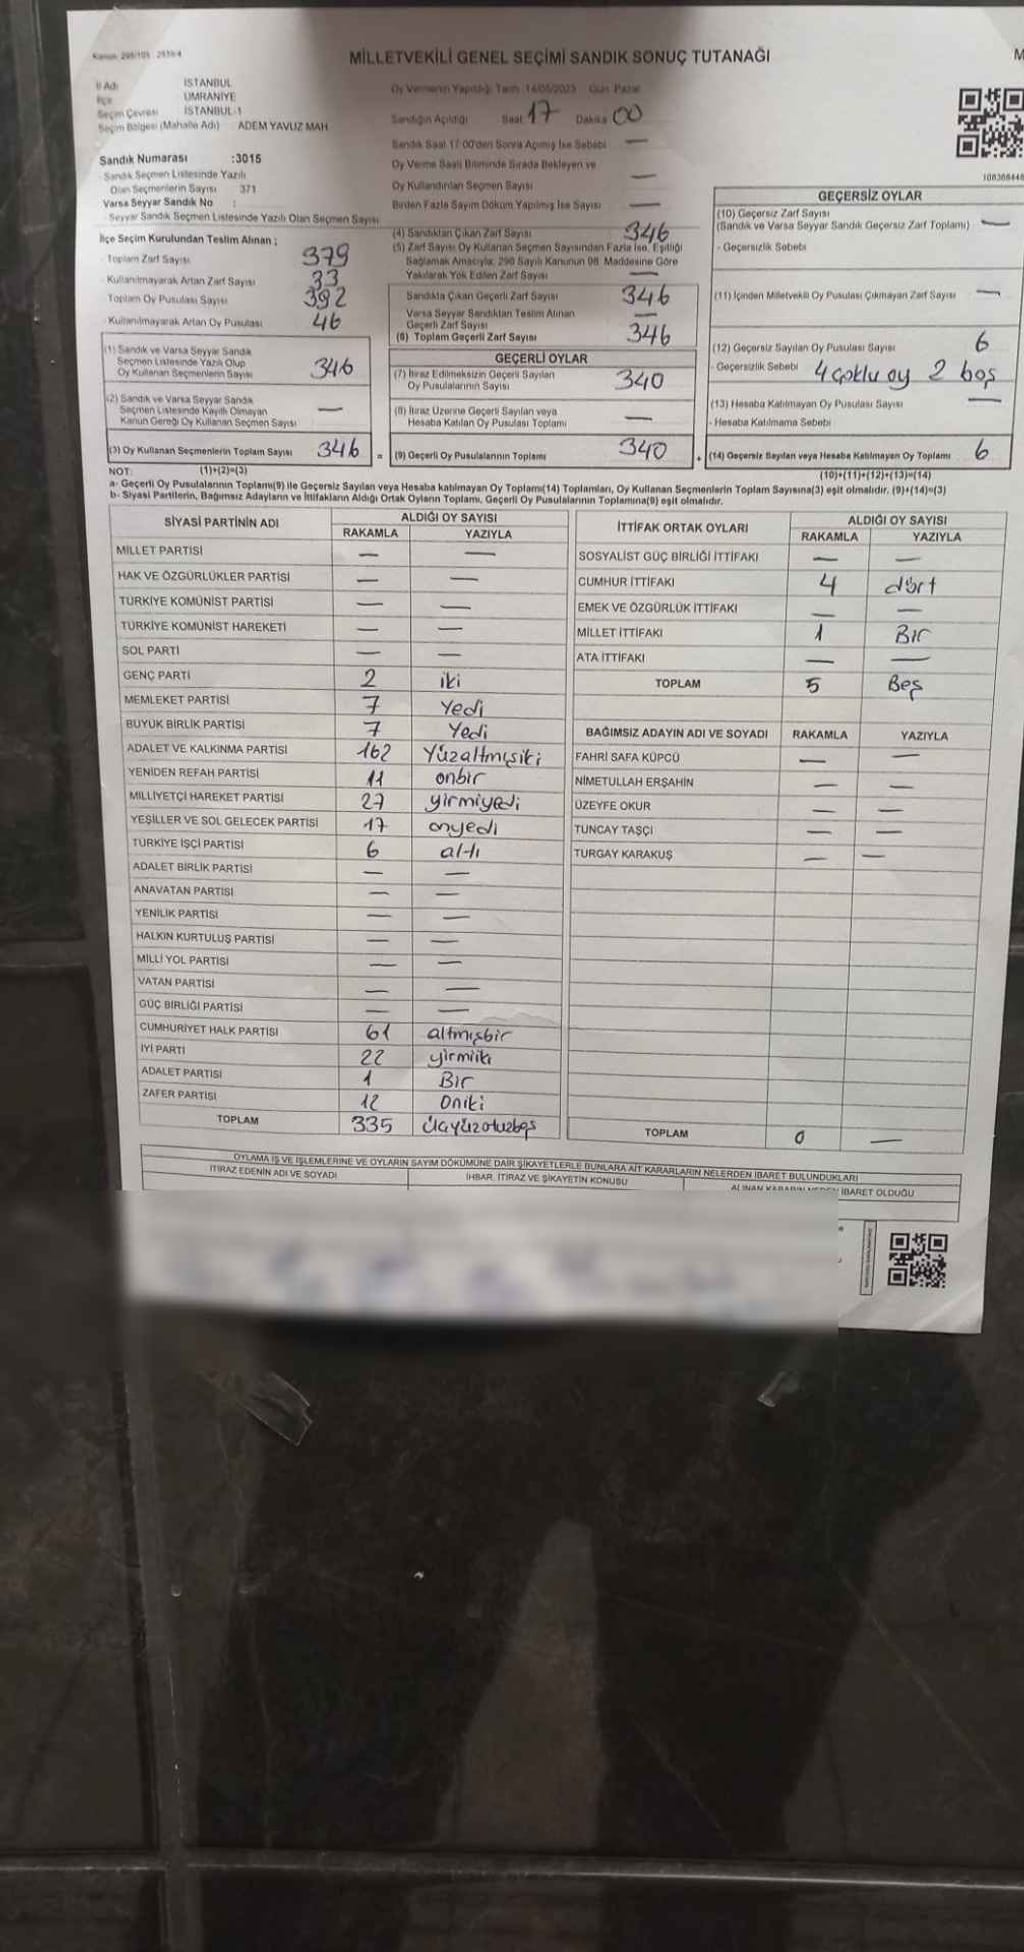 Kanun: 298/105 2839/4
MİLLETVEKİLİ GENEL SEÇİMİ SANDIK SONUÇ TUTANAĞI
M
İl Adı İSTANBUL
İlçe ÜMRANİYE
Seçim Çevresi İSTANBUL-1
Seçim Bölgesi (Mahalle Adı) ADEM YAVUZ MAH
Sandık Numarası :3015
Sandık Seçmen Listesinde Yazılı
Olan Seçmenlerin Sayısı 371
Varsa Seyyar Sandık No :
Seyyar Sandık Seçmen Listesinde Yazılı Olan Seçmen Sayısı
Oy Vermenin Yapıldığı Tarih: 14/05/2023 Gün: Pazar
Sandığın Açıldığı Saat 17 Dakika 00
Sandık Saat 17:00'den Sonra Açılmış İse Sebebi —
Oy Verme Saati Bitiminde Sırada Bekleyen ve
Oy Kullandırılan Seçmen Sayısı —
Birden Fazla Sayım Döküm Yapılmış İse Sayısı —
İlçe Seçim Kurulundan Teslim Alınan ;
- Toplam Zarf Sayısı 379
- Kullanılmayarak Artan Zarf Sayısı 33
- Toplam Oy Pusulası Sayısı 392
- Kullanılmayarak Artan Oy Pusulası 46
(1) Sandık ve Varsa Seyyar Sandık
Seçmen Listesinde Yazılı Olup
Oy Kullanan Seçmenlerin Sayısı 346
(2) Sandık ve Varsa Seyyar Sandık
Seçmen Listesinde Kayıtlı Olmayan
Kanun Gereği Oy Kullanan Seçmen Sayısı —
(3) Oy Kullanan Seçmenlerin Toplam Sayısı 346 =
(4) Sandıktan Çıkan Zarf Sayısı 346
(5) Zarf Sayısı Oy Kullanan Seçmen Sayısından Fazla İse, Eşitliği
Sağlamak Amacıyla, 298 Sayılı Kanunun 98. Maddesine Göre
Yakılarak Yok Edilen Zarf Sayısı —
Sandıkta Çıkan Geçerli Zarf Sayısı 346
Varsa Seyyar Sandıktan Teslim Alınan
Geçerli Zarf Sayısı —
(6) Toplam Geçerli Zarf Sayısı 346
GEÇERLİ OYLAR
(7) İtiraz Edilmeksizin Geçerli Sayılan
Oy Pusulalarının Sayısı 340
(8) İtiraz Üzerine Geçerli Sayılan veya
Hesaba Katılan Oy Pusulası Toplamı —
(9) Geçerli Oy Pusulalarının Toplamı 340 +
GEÇERSİZ OYLAR
(10) Geçersiz Zarf Sayısı
(Sandık ve Varsa Seyyar Sandık Geçersiz Zarf Toplamı) —
- Geçersizlik Sebebi
(11) İçinden Milletvekili Oy Pusulası Çıkmayan Zarf Sayısı —
(12) Geçersiz Sayılan Oy Pusulası Sayısı 6
- Geçersizlik Sebebi 4 çoklu oy 2 boş
(13) Hesaba Katılmayan Oy Pusulası Sayısı —
- Hesaba Katılmama Sebebi
(14) Geçersiz Sayılan veya Hesaba Katılmayan Oy Toplamı 6
NOT: (1)+(2)=(3) (10)+(11)+(12)+(13)=(14)
a- Geçerli Oy Pusulalarının Toplamı(9) ile Geçersiz Sayılan veya Hesaba katılmayan Oy Toplamı(14) Toplamları, Oy Kullanan Seçmenlerin Toplam Sayısına(3) eşit olmalıdır. (9)+(14)=(3)
b- Siyasi Partilerin, Bağımsız Adayların ve İttifakların Aldığı Ortak Oyların Toplamı, Geçerli Oy Pusulalarının Toplamına(9) eşit olmalıdır.
SİYASİ PARTİNİN ADI ALDIĞI OY SAYISI
RAKAMLA YAZIYLA
MİLLET PARTİSİ — —
HAK VE ÖZGÜRLÜKLER PARTİSİ — —
TÜRKİYE KOMÜNİST PARTİSİ — —
TÜRKİYE KOMÜNİST HAREKETİ — —
SOL PARTİ — —
GENÇ PARTİ 2 iki
MEMLEKET PARTİSİ 7 Yedi
BÜYÜK BİRLİK PARTİSİ 7 Yedi
ADALET VE KALKINMA PARTİSİ 162 Yüzaltmışiki
YENİDEN REFAH PARTİSİ 11 onbir
MİLLİYETÇİ HAREKET PARTİSİ 27 yirmiyedi
YEŞİLLER VE SOL GELECEK PARTİSİ 17 onyedi
TÜRKİYE İŞÇİ PARTİSİ 6 altı
ADALET BİRLİK PARTİSİ — —
ANAVATAN PARTİSİ — —
YENİLİK PARTİSİ — —
HALKIN KURTULUŞ PARTİSİ — —
MİLLİ YOL PARTİSİ — —
VATAN PARTİSİ — —
GÜÇ BİRLİĞİ PARTİSİ — —
CUMHURİYET HALK PARTİSİ 61 altmışbir
İYİ PARTİ 22 yirmiiki
ADALET PARTİSİ 1 Bir
ZAFER PARTİSİ 12 Oniki
TOPLAM 335 Üçyüzotuzbeş
İTTİFAK ORTAK OYLARI ALDIĞI OY SAYISI
RAKAMLA YAZIYLA
SOSYALİST GÜÇ BİRLİĞİ İTTİFAKI — —
CUMHUR İTTİFAKI 4 dört
EMEK VE ÖZGÜRLÜK İTTİFAKI — —
MİLLET İTTİFAKI 1 Bir
ATA İTTİFAKI — —
TOPLAM 5 Beş
BAĞIMSIZ ADAYIN ADI VE SOYADI RAKAMLA YAZIYLA
FAHRİ SAFA KÜPCÜ — —
NİMETULLAH ERŞAHİN — —
ÜZEYFE OKUR — —
TUNCAY TAŞÇI — —
TURGAY KARAKUŞ — —
TOPLAM 0 —
OYLAMA İŞ VE İŞLEMLERİNE VE OYLARIN SAYIM DÖKÜMÜNE DAİR ŞİKAYETLERLE BUNLARA AİT KARARLARIN NELERDEN İBARET BULUNDUKLARI
İTİRAZ EDENİN ADI VE SOYADI İHBAR, İTİRAZ VE ŞİKAYETİN KONUSU ALINAN KARARIN NEDEN İBARET OLDUĞU